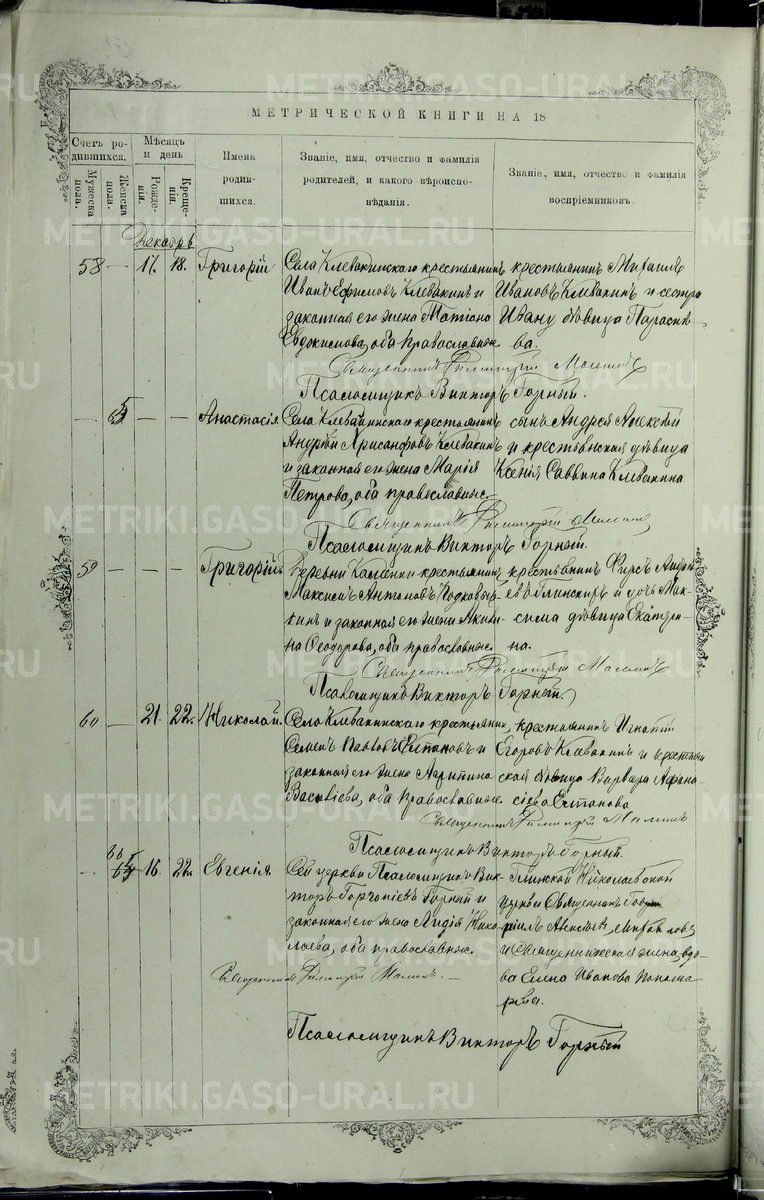 МЕТРИЧЕСКОЙ КНИГИ НА 18
Счетъ родившихся.
Мужеска пола.
Женска пола.
Мѣсяцъ и день
Рожденія.
Крещенія.
Имена родившихся.
Званіе, имя, отчество и фамилія родителей, и какого вѣроисповѣданія.
Званіе, имя, отчество и фамилія воспріемниковъ.
Декабрь
58 — 17. 18. Григорій
Села Клевакинскаго крестьянинъ
Иванъ Ефимовъ Клевакинъ и
законная его жена Татіана
Евдокимова, оба православные
крестьянинъ Михаилъ
Ивановъ Клевакинъ и сестра
Ивану дѣвица Параске-
ва.
Священникъ Димитрій Маминъ
Псаломщикъ Викторъ Горный.
— — — Анастасія
Села Клевакинскаго крестьянинъ
Андрей Хрисанфовъ Клевакинъ
и законная его жена Марія
Петрова, оба православные.
сынъ Андрея Алексѣй
и крестьянская дѣвица
Ксенія Саввина Клевакина
Священникъ Димитрій Маминъ
Псаломщикъ Викторъ Горный.
59 — — — Григорій.
Деревни Каменки крестьянинъ
Максимъ Антоновъ
и законная его жена Акили-
на Ѳеодорова, оба православные
крестьянинъ Фирсъ
и дочь Мак-
сима дѣвица Екатери-
на.
Священникъ Димитрій Маминъ
Псаломщикъ Викторъ Горный.
60 — 21. 22. Николай.
Села Клевакинскаго крестьянинъ
Семенъ Павловъ Елтановъ и
законная его жена Агрипина
Васильева, оба православные
крестьянинъ Игнатій
Егоровъ Клевакинъ и крестьян-
ская дѣвица Варвара Афана-
сіева Елтанова
Священникъ Димитрій Маминъ
Псаломщикъ Викторъ Горный.
— 16. 22. Евгенія.
Сей церкви Псаломщикъ Вик-
торъ Горгоніевъ Горный и
законная его жена Лидія Нико-
лаева, оба православные.
Николаевской
церкви Священникъ
и Священническая жена, вдо-
ва Елена Иванова Понома-
рева.
Священникъ Димитрій Маминъ. —
Псаломщикъ Викторъ Горный
METRIKI.GASO-URAL.RU